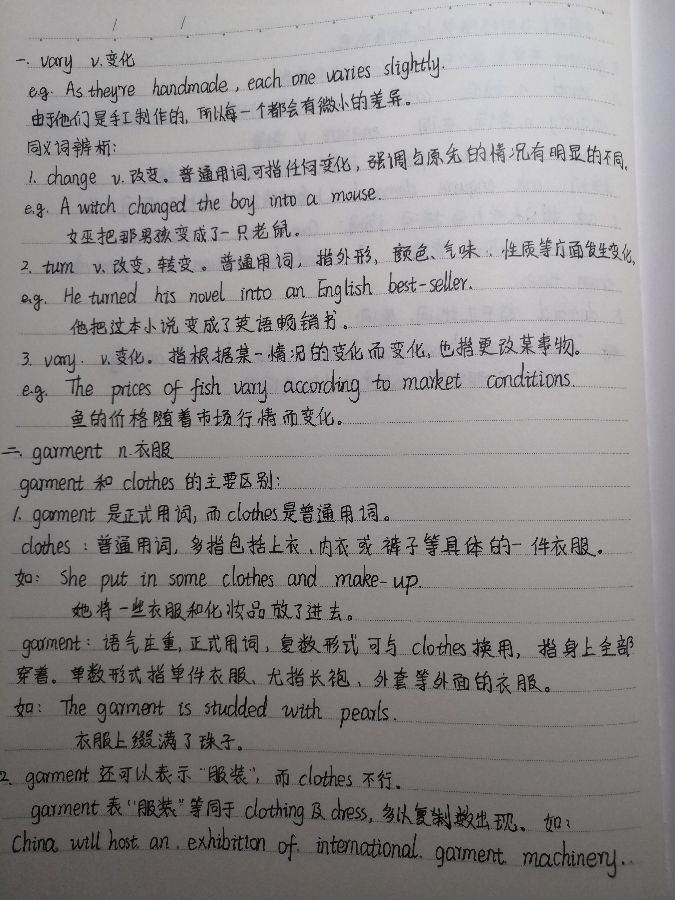 一. vary v.变化
e.g. As they're handmade, each one varies slightly.
由于他们是手工制作的, 所以每一个都会有微小的差异。
同义词辨析:
1. change v.改变。普通用词,可指任何变化, 强调与原先的情况有明显的不同.
e.g. A witch changed the boy into a mouse.
女巫把那男孩变成了一只老鼠。
2. turn v.改变,转变。普通用词, 指外形, 颜色、气味、性质等方面发生变化,
e.g. He turned his novel into an English best-seller.
他把这本小说变成了英语畅销书。
3. vary. v.变化。指根据某一情况的变化而变化,也指更改某事物。
e.g. The prices of fish vary according to market conditions.
鱼的价格随着市场行情而变化。
二. garment n.衣服
garment 和 clothes 的主要区别:
1. garment 是正式用词, 而clothes是普通用词。
clothes : 普通用词, 多指包括上衣、内衣或裤子等具体的一件衣服。
如: She put in some clothes and make-up.
她将一些衣服和化妆品放了进去。
garment: 语气庄重,正式用词, 复数形式可与 clothes 换用, 指身上全部
穿着。单数形式指单件衣服、尤指长袍、外套等外面的衣服。
如: The garment is studded with pearls.
衣服上缀满了珠子。
2. garment 还可以表示"服装", 而 clothes 不行。
garment 表"服装"等同于 clothing 及 dress, 多以复制数出现。如:
China will host an exhibition of international garment machinery..